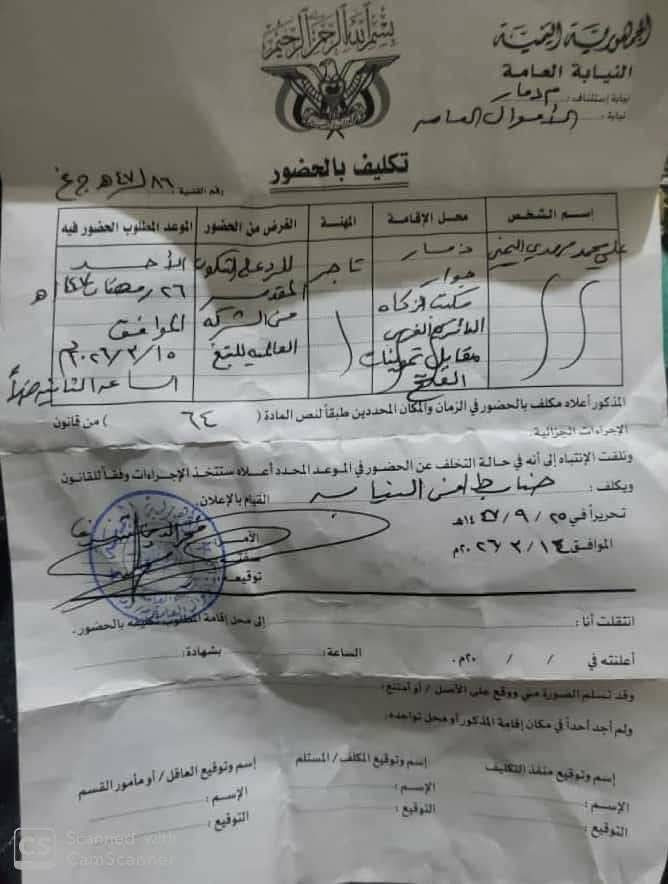 بسم الله الرحمن الرحيم
الجمهورية اليمنية
النيابة العامة
نيابة إستئناف: م ذمار
نيابة: الأموال العامه
تكليف بالحضور
رقم القضية: ٨٦ / ٤٧هـ ج غ
إسم الشخص
محل الإقامة
المهنة
الغرض من الحضور
الموعد المطلوب الحضور فيه
علي محمد مهدي اليمني
ذمار
جوار
مكتب الزكاه
مقابل تموينات
تاجر
للرد على الشكوى
المقدمه
من الشركه
العالميه للتبغ
الأحد
٢٦ رمضان ١٤٤٧ هـ
الموافق
١٥/٣/٢٠٢٦م
الساعه
المذكور أعلاه مكلف بالحضور في الزمان والمكان المحددين طبقاً لنص المادة ( ٦٤ ) من قانون
الإجراءات الجزائية.
ونلفت الإنتباه إلى أنه في حالة التخلف عن الحضور في الموعد المحدد أعلاه ستتخذ الإجراءات وفقاً للقانون
ويكلف: ضابط امن النيابه القيام بالإعلان.
تحريراً في ٢٥ / ٩ / ١٤٤٧هـ
الموافق ١٤ / ٣ / ٢٠٢٦م
الآمر
صفته
توقيعه
انتقلت أنا: إلى محل إقامة المطلوب تكليفه بالحضور.
أعلنته في / / ٢٠م. الساعة: بشهادة:
وقد تسلم الصورة مني ووقع على الأصل / أو أمتنع:
ولم أجد أحداً في مكان إقامة المذكور أو محل تواجده:
إسم وتوقيع منفذ التكليف
إسم وتوقيع المكلف / المستلم
إسم وتوقيع العاقل / أو مأمور القسم
الإسم: الإسم: الإسم:
التوقيع: التوقيع: التوقيع:
CS Scanned with
CamScanner